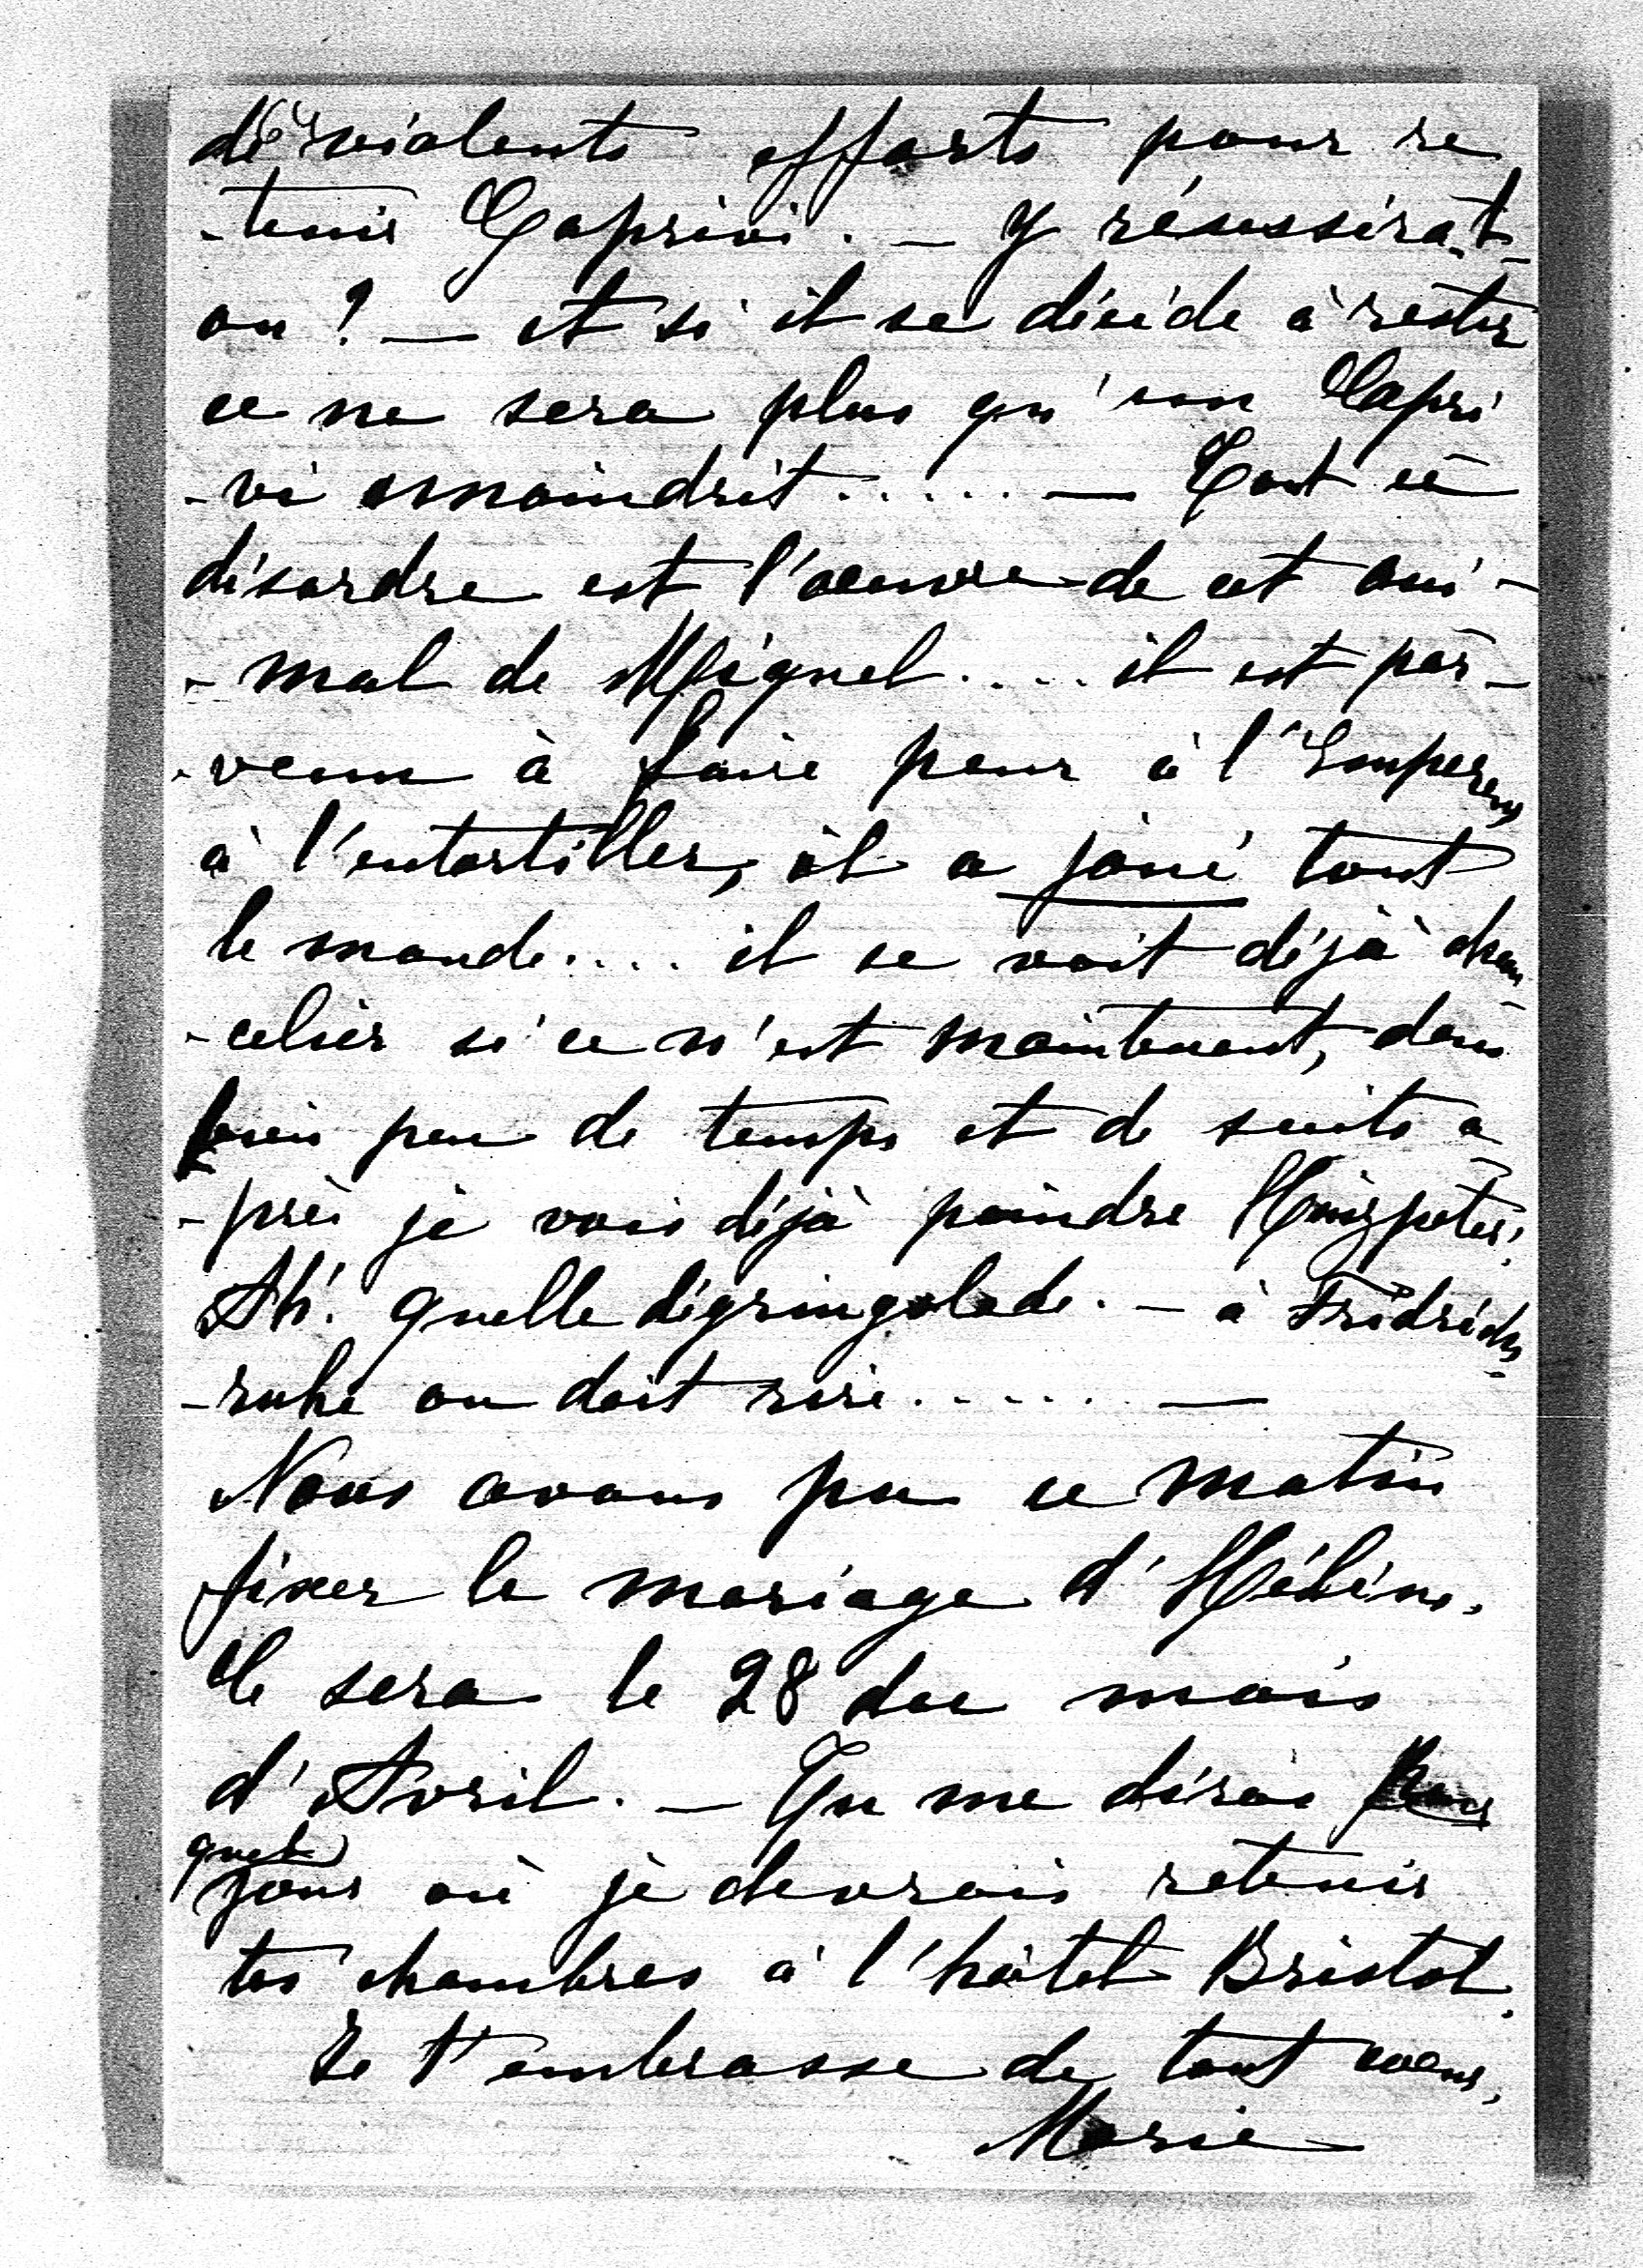 de violents efforts pour re
-tenir Caprivi. — Y réussira-t-
on? — et si il se décide à rester
ce ne sera plus qu'un Capri
-vi amoindrit...... — Tout ce
désordre est l'oeuvre de cet ani-
-mal de Miquel.... il est par-
-venu à faire peur à l'Empereur
à l'entortiller, il a joué tout
le monde.... il se voit déjà chan-
-celier si ce n'est maintenant, dans
bien peu de temps et de suite a
-près je vois déjà poindre Hinzpeter!
Ah! quelle dégringolade. — à Fridrichs
-ruhe on doit rire...... —
Nous avons pu ce matin
fixer le mariage d'Hélène.
Il sera le 28 du mois
d'Avril. — Tu me diras
quel
jour où je devrais retenir
tes chambres à l'hôtel Bristol.
Je t'embrasse de tout coeur,
Marie